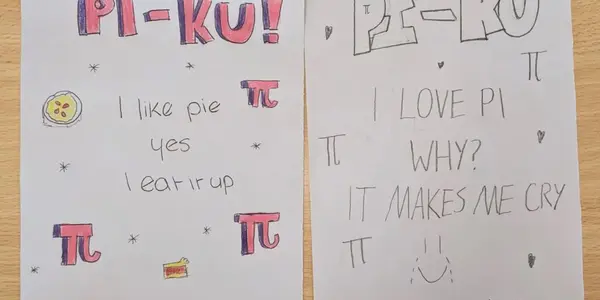 PI-KU!
π
I like pie
yes
I eat it up
π
π
PI-KU
π
π
I LOVE PI
π
WHY?
IT MAKES ME CRY
π